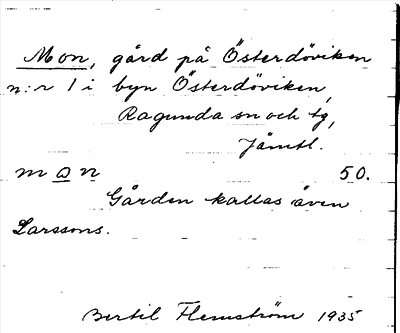 Mon, gård på Österdöviken
n:r 1 i byn Österdöviken,
Ragunda sn och tg,
Jämtl.
mon 50.
Gården kallas även
Larssons.
Bertil Flemström 1935